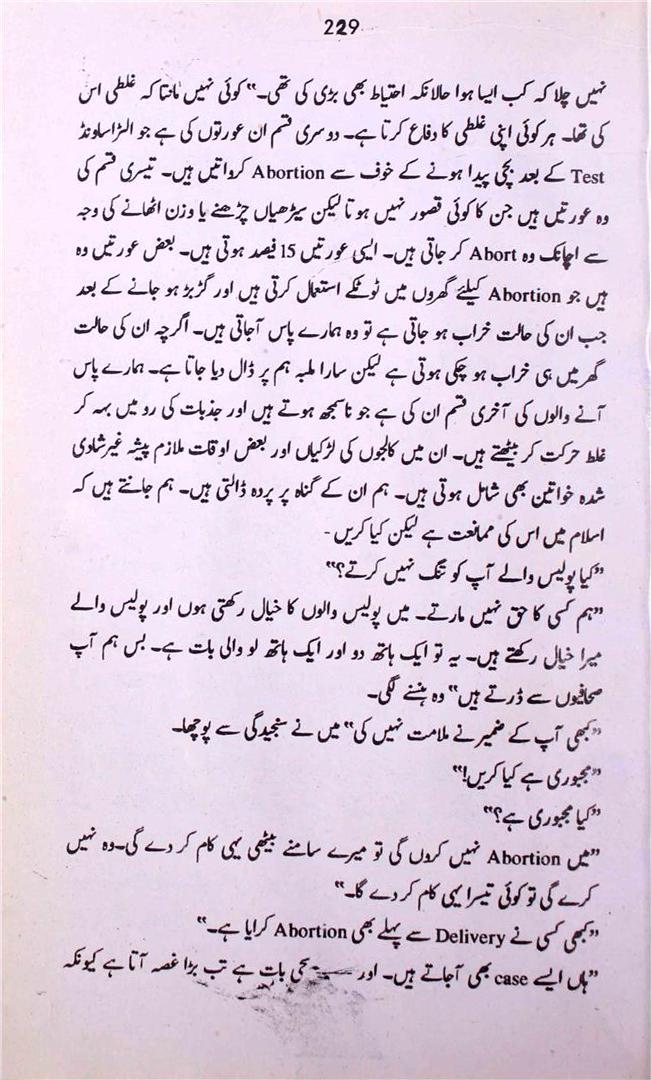 229
نہیں چلا کہ کب ایسا ہوا حالانکہ احتیاط بھی بڑی کی تھی۔“ کوئی نہیں مانتا کہ غلطی اس
کی تھا۔ ہر کوئی اپنی غلطی کا دفاع کرتا ہے۔ دوسری قسم ان عورتوں کی ہے جو الٹراساونڈ
Test کے بعد بچی پیدا ہونے کے خوف سے Abortion کرواتیں ہیں۔ تیسری قسم کی
وہ عورتیں ہیں جن کا کوئی قصور نہیں ہوتا لیکن سیڑھیاں چڑھنے یا وزن اٹھانے کی وجہ
سے اچانک وہ Abort کر جاتی ہیں۔ ایسی عورتیں 15 فیصد ہوتی ہیں۔ بعض عورتیں وہ
ہیں جو Abortion کیلئے گھروں میں ٹوٹکے استعمال کرتی ہیں اور گڑبڑ ہو جانے کے بعد
جب ان کی حالت خراب ہو جاتی ہے تو وہ ہمارے پاس آجاتی ہیں۔ اگرچہ ان کی حالت
گھر میں ہی خراب ہو چکی ہوتی ہے لیکن سارا ملبہ ہم پر ڈال دیا جاتا ہے۔ ہمارے پاس
آنے والوں کی آخری قسم ان کی ہے جو ناسمجھ ہوتے ہیں اور جذبات کی رو میں بہہ کر
غلط حرکت کر بیٹھتے ہیں۔ ان میں کالجوں کی لڑکیاں اور بعض اوقات ملازم پیشہ غیرشادی
شدہ خواتین بھی شامل ہوتی ہیں۔ ہم ان کے گناہ پر پردہ ڈالتی ہیں۔ ہم جانتے ہیں کہ
اسلام میں اس کی ممانعت ہے لیکن کیا کریں۔
”کیا پولیس والے آپ کو تنگ نہیں کرتے؟“
”ہم کسی کا حق نہیں مارتے۔ میں پولیس والوں کا خیال رکھتی ہوں اور پولیس والے
میرا خیال رکھتے ہیں۔ یہ تو ایک ہاتھ دو اور ایک ہاتھ لو والی بات ہے۔ بس ہم آپ
صحافیوں سے ڈرتے ہیں“ وہ ہنسنے لگی۔
”کبھی آپ کے ضمیر نے ملامت نہیں کی“ میں نے سنجیدگی سے پوچھا۔
”مجبوری ہے کیا کریں!“
”کیا مجبوری ہے؟“
”میں Abortion نہیں کروں گی تو میرے سامنے بیٹھی یہی کام کر دے گی۔ وہ نہیں
کرے گی تو کوئی تیسرا یہی کام کر دے گا۔“
”کبھی کسی نے Delivery سے پہلے بھی Abortion کرایا ہے۔“
”ہاں ایسے case بھی آجاتے ہیں۔ اور بات ہے تب بڑا غصہ آتا ہے کیونکہ